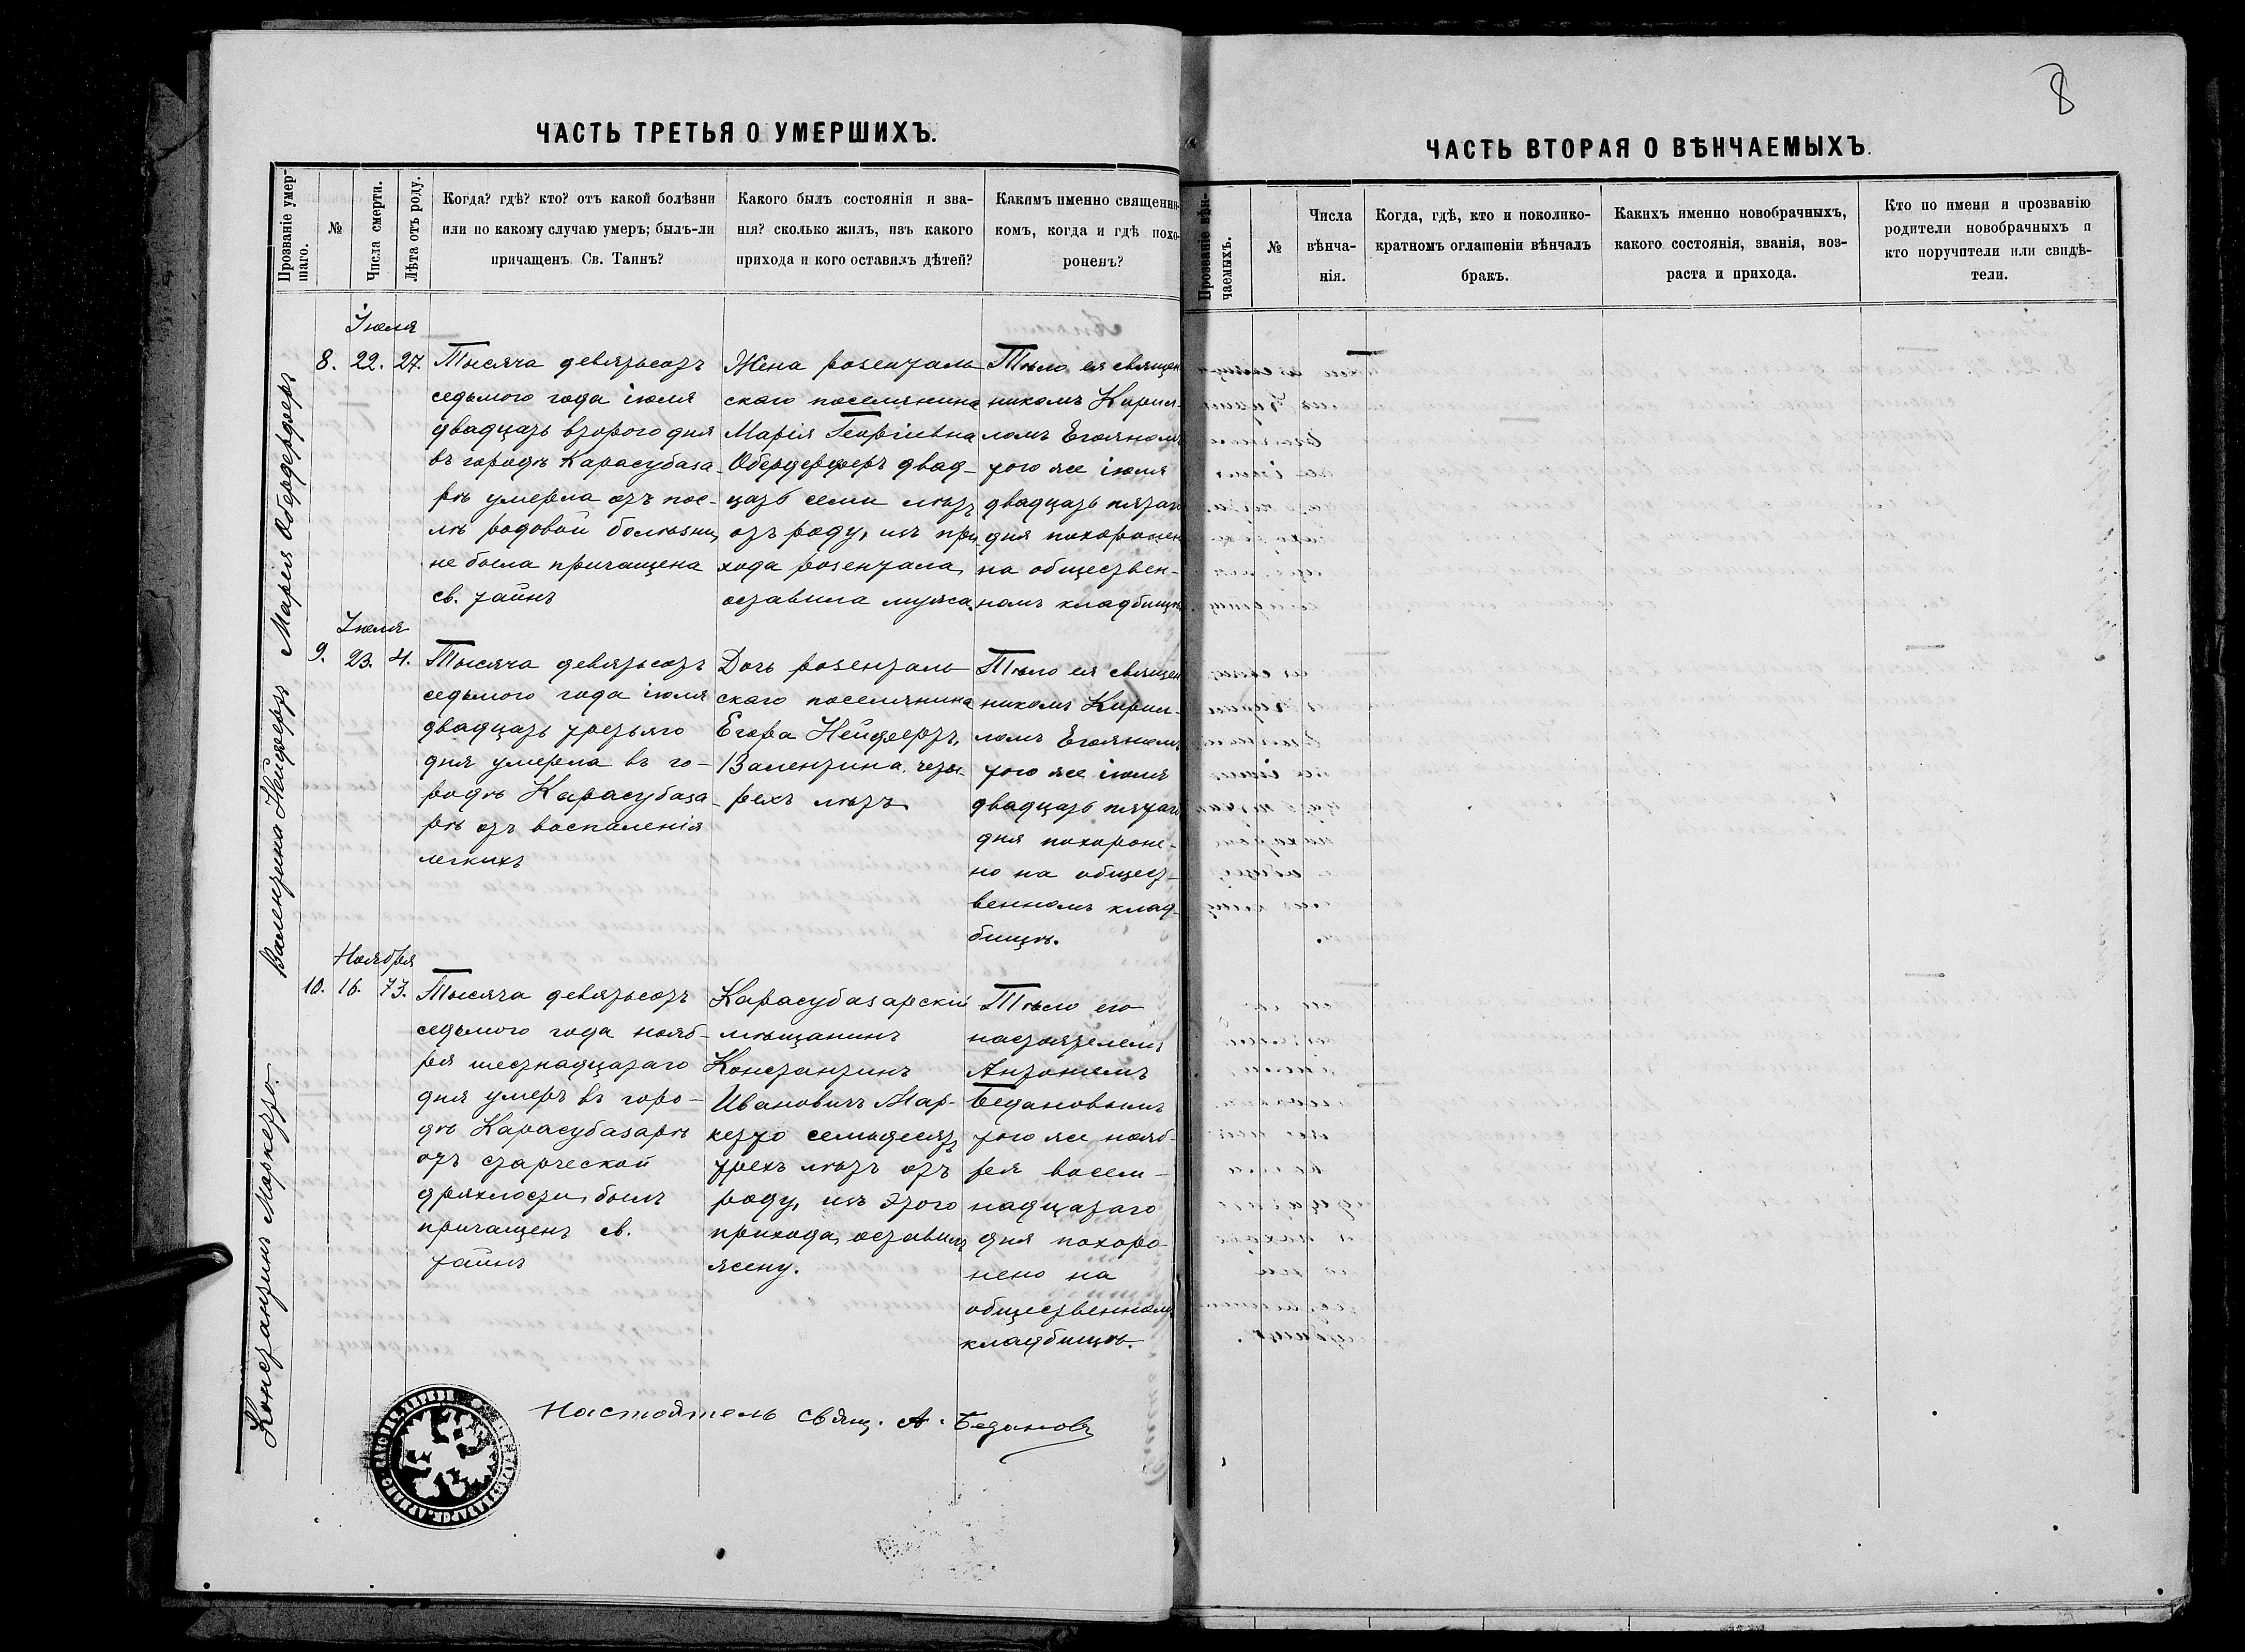 ЧАСТЬ ТРЕТЬЯ О УМЕРШИХЪ.
Прозваніе умер-
шаго.
№
Числа смерти.
Лѣта отъ роду.
Когда? гдѣ? кто? отъ какой болѣзни
или по какому случаю умеръ; былъ-ли
причащенъ Св. Таинъ?
Какого былъ состоянія и зва-
нія? сколько жилъ, изъ какого
прихода и кого оставилъ дѣтей?
Какимъ именно священни-
комъ, когда и гдѣ похо-
роненъ?
Марія Обердерферъ
Іюля
8. 22. 27.
Тысяча девятьсотъ
седьмого года іюля
двадцать второго дня
въ городѣ Карасубаза-
рѣ умерла отъ пос-
лѣ родовой болѣзни,
не была причащена
св. тайнъ
Жена розенталь-
скаго поселянина
Марія Георгіевна
Обердерферъ двад-
цать семи лѣтъ
отъ роду, изъ при-
хода розентала,
оставила мужа.
Тѣло ея священ
никомъ Кирил-
ломъ Егояномъ
того же іюля
двадцать пятаго
дня похоронен
на обществен-
номъ кладбищѣ
Валентина Нейфертъ
Іюля
9. 23. 4.
Тысяча девятьсотъ
седьмого года іюля
двадцать третьяго
дня умерла въ го-
родѣ Карасубаза-
рѣ отъ воспаленія
легкихъ
Дочь розенталь-
скаго поселянина
Егора Нейфертъ,
Валентина четы-
рехъ лѣтъ
Тѣло ея священ
никомъ Кирил-
ломъ Егояномъ
того же іюля
двадцать пятаго
дня похороне-
но на общест-
венномъ клад-
бищѣ.
Константинъ Маркетто.
Ноября
10. 16. 73.
Тысяча девятьсотъ
седьмого года нояб-
ря шестнадцатаго
дня умеръ въ горо-
дѣ Карасубазарѣ
отъ старческой
дряхлости, былъ
причащенъ св.
тайнъ
Карасубазарскій
мѣщанинъ
Константинъ
Ивановичъ Мар-
кетто семьдесятъ
трехъ лѣтъ отъ
роду, изъ этого
прихода, оставилъ
жену.
Тѣло его
настоятелемъ
Антономъ
Бедановымъ
того же нояб-
ря восем-
надцатаго
дня похоро
нено на
общественномъ
кладбищѣ.
Настоятель свящ. А. Бедановъ
8
ЧАСТЬ ВТОРАЯ О ВѢНЧАЕМЫХЪ.
Прозваніе вѣн-
чаемыхъ.
№
Числа
вѣнча-
нія.
Когда, гдѣ, кто и поколико-
кратномъ оглашеніи вѣнчалъ
бракъ.
Какихъ именно новобрачныхъ,
какого состоянія, званія, воз-
раста и прихода.
Кто по имени и прозванію
родители новобрачныхъ и
кто поручители или свидѣ-
тели.